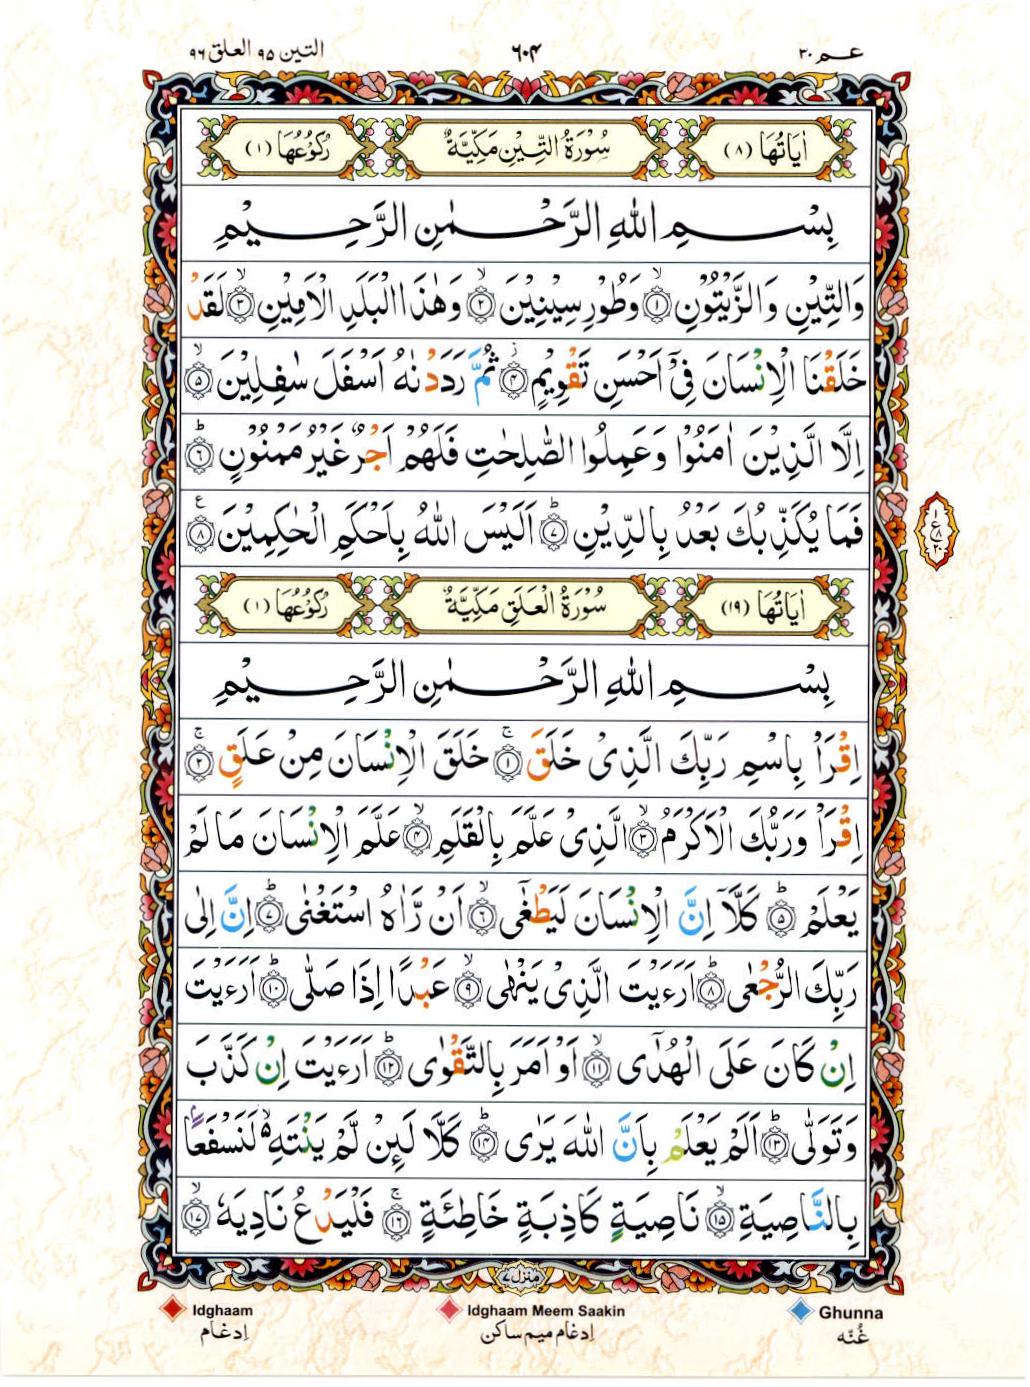 عـم ٣٠
٦٠٤
التين ٩٥ العلق ٩٦
اٰيَاتُهَا (٨)
سُوْرَةُ التِّيْنِ مَكِّيَّةٌ
رُكُوْعُهَا (١)
بِسْمِ اللهِ الرَّحْمٰنِ الرَّحِيْمِ
وَالتِّيْنِ وَالزَّيْتُوْنِ ۙ ﴿١﴾ وَطُوْرِ سِيْنِيْنَ ۙ ﴿٢﴾ وَهٰذَا الْبَلَدِ الْاَمِيْنِ ۙ ﴿٣﴾ لَقَدْ
خَلَقْنَا الْاِنْسَانَ فِيْٓ اَحْسَنِ تَقْوِيْمٍ ؗ ﴿٤﴾ ثُمَّ رَدَدْنٰهُ اَسْفَلَ سٰفِلِيْنَ ۙ ﴿٥﴾
اِلَّا الَّذِيْنَ اٰمَنُوْا وَعَمِلُوا الصّٰلِحٰتِ فَلَهُمْ اَجْرٌ غَيْرُ مَمْنُوْنٍ ؕ ﴿٦﴾
فَمَا يُكَذِّبُكَ بَعْدُ بِالدِّيْنِ ؕ ﴿٧﴾ اَلَيْسَ اللهُ بِاَحْكَمِ الْحٰكِمِيْنَ ﴿٨﴾ ع
١
ع
٨
٢٠
اٰيَاتُهَا (١٩)
سُوْرَةُ الْعَلَقِ مَكِّيَّةٌ
رُكُوْعُهَا (١)
بِسْمِ اللهِ الرَّحْمٰنِ الرَّحِيْمِ
اِقْرَاْ بِاسْمِ رَبِّكَ الَّذِيْ خَلَقَ ۚ ﴿١﴾ خَلَقَ الْاِنْسَانَ مِنْ عَلَقٍ ۚ ﴿٢﴾
اِقْرَاْ وَرَبُّكَ الْاَكْرَمُ ۙ ﴿٣﴾ الَّذِيْ عَلَّمَ بِالْقَلَمِ ۙ ﴿٤﴾ عَلَّمَ الْاِنْسَانَ مَا لَمْ
يَعْلَمْ ؕ ﴿٥﴾ كَلَّآ اِنَّ الْاِنْسَانَ لَيَطْغٰٓى ۙ ﴿٦﴾ اَنْ رَّاٰهُ اسْتَغْنٰى ؕ ﴿٧﴾ اِنَّ اِلٰى
رَبِّكَ الرُّجْعٰى ؕ ﴿٨﴾ اَرَءَيْتَ الَّذِيْ يَنْهٰى ۙ ﴿٩﴾ عَبْدًا اِذَا صَلّٰى ؕ ﴿١٠﴾ اَرَءَيْتَ
اِنْ كَانَ عَلَى الْهُدٰٓى ۙ ﴿١١﴾ اَوْ اَمَرَ بِالتَّقْوٰى ؕ ﴿١٢﴾ اَرَءَيْتَ اِنْ كَذَّبَ
وَتَوَلّٰى ؕ ﴿١٣﴾ اَلَمْ يَعْلَمْ بِاَنَّ اللهَ يَرٰى ؕ ﴿١٤﴾ كَلَّا لَئِنْ لَّمْ يَنْتَهِ ۙ۬ لَنَسْفَعًا
بِالنَّاصِيَةِ ۙ ﴿١٥﴾ نَاصِيَةٍ كَاذِبَةٍ خَاطِئَةٍ ۚ ﴿١٦﴾ فَلْيَدْعُ نَادِيَهٗ ۙ ﴿١٧﴾
منزل ٧
Idghaam
اِدغام
Idghaam Meem Saakin
اِدغام میم ساکن
Ghunna
غُنّه